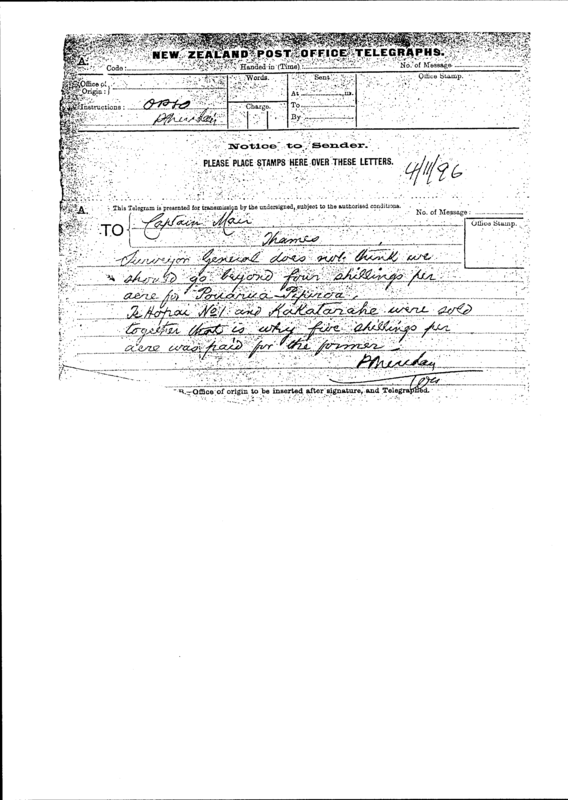 NEW ZEALAND POST OFFICE TELEGRAPHS.
A.
Code: Handed in (Time) No. of Message
Office of Origin: Words. Sent Office Stamp.
At m.
Instructions: OPSO Charge. To
P Sheridan By
Notice to Sender.
PLEASE PLACE STAMPS HERE OVER THESE LETTERS.
4/11/96
A. This Telegram is presented for transmission by the undersigned, subject to the authorised conditions. No. of Message:
Office Stamp.
TO Captain Mair
Thames
Surveyor General does not think we
should go beyond four shillings per
acre for Pouarua Pipiroa,
Te Hopai No 1 and Kakatarahe were sold
together that is why five shillings per
acre was paid for the former
P Sheridan
B.—Office of origin to be inserted after signature, and Telegraphed.